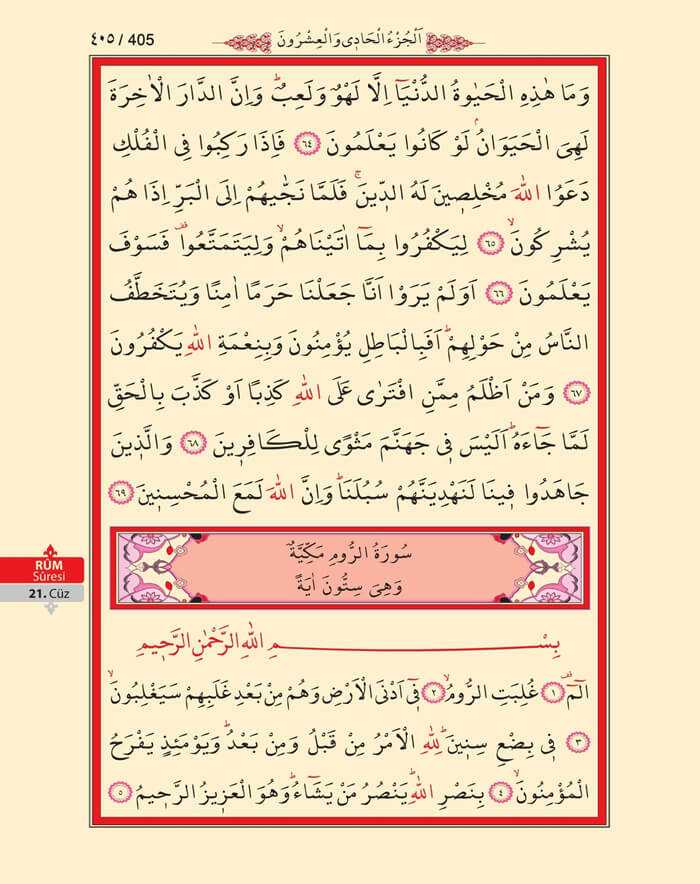 ٤٠٥ / 405
اَلْجُزْءُ الْحَادِى وَالْعِشْرُونَ
وَمَا هٰذِهِ الْحَيٰوةُ الدُّنْيَٓا اِلَّا لَهْوٌ وَلَعِبٌۜ وَاِنَّ الدَّارَ الْاٰخِرَةَ
لَهِىَ الْحَيَوَانُۢ لَوْ كَانُوا يَعْلَمُونَ ﴿٦٤﴾ فَاِذَا رَكِبُوا فِى الْفُلْكِ
دَعَوُا اللّٰهَ مُخْلِصٖينَ لَهُ الدّٖينَۚ فَلَمَّا نَجّٰيهُمْ اِلَى الْبَرِّ اِذَا هُمْ
يُشْرِكُونَۙ ﴿٦٥﴾ لِيَكْفُرُوا بِمَٓا اٰتَيْنَاهُمْۙ وَلِيَتَمَتَّعُوا۠ فَسَوْفَ
يَعْلَمُونَ ﴿٦٦﴾ اَوَلَمْ يَرَوْا اَنَّا جَعَلْنَا حَرَمًا اٰمِنًا وَيُتَخَطَّفُ
النَّاسُ مِنْ حَوْلِهِمْۜ اَفَبِالْبَاطِلِ يُؤْمِنُونَ وَبِنِعْمَةِ اللّٰهِ يَكْفُرُونَ
﴿٦٧﴾ وَمَنْ اَظْلَمُ مِمَّنِ افْتَرٰى عَلَى اللّٰهِ كَذِبًا اَوْ كَذَّبَ بِالْحَقِّ
لَمَّا جَٓاءَهُۜ اَلَيْسَ فٖى جَهَنَّمَ مَثْوًى لِلْكَافِرٖينَ ﴿٦٨﴾ وَالَّذٖينَ
جَاهَدُوا فٖينَا لَنَهْدِيَنَّهُمْ سُبُلَنَاۜ وَاِنَّ اللّٰهَ لَمَعَ الْمُحْسِنٖينَ ﴿٦٩﴾
سُورَةُ الرُّومِ مَكِّيَّةٌ
وَهِىَ سِتُّونَ اٰيَةً
RÛM
Sûresi
21. Cüz
بِسْمِ اللّٰهِ الرَّحْمٰنِ الرَّحٖيمِ
الٓمٓ ﴿١﴾ غُلِبَتِ الرُّومُۙ ﴿٢﴾ فٖٓى اَدْنَى الْاَرْضِ وَهُمْ مِنْ بَعْدِ غَلَبِهِمْ سَيَغْلِبُونَۙ
﴿٣﴾ فٖى بِضْعِ سِنٖينَۜ لِلّٰهِ الْاَمْرُ مِنْ قَبْلُ وَمِنْ بَعْدُۜ وَيَوْمَئِذٍ يَفْرَحُ
الْمُؤْمِنُونَۙ ﴿٤﴾ بِنَصْرِ اللّٰهِۜ يَنْصُرُ مَنْ يَشَٓاءُۜ وَهُوَ الْعَزٖيزُ الرَّحٖيمُ ﴿٥﴾